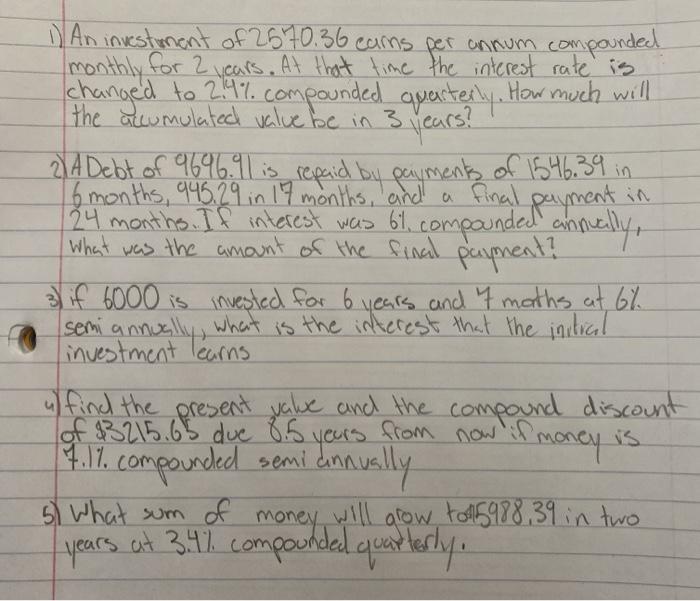 1) An investment of 2570.36 earns per annum compounded
monthly for 2 years. At that time the interest rate is
changed to 2.4% compounded quarterly. How much will
the accumulated value be in 3 years?
2) A Debt of 9696.91 is repaid by payments of 1546.39 in
6 months, 945.29 in 17 months, and a final payment in
24 months. If interest was 6% compounded annually,
what was the amount of the final payment?
3) if 6000 is invested for 6 years and 7 moths at 6%
semi annually, what is the interest that the initical
investment earns
4) find the present value and the compound discount
of $3215.65 due 8.5 years from now if money is
7.1% compounded semi annually
5) What sum of money will grow to $5988.39 in two
years at 3.4% compounded quarterly.